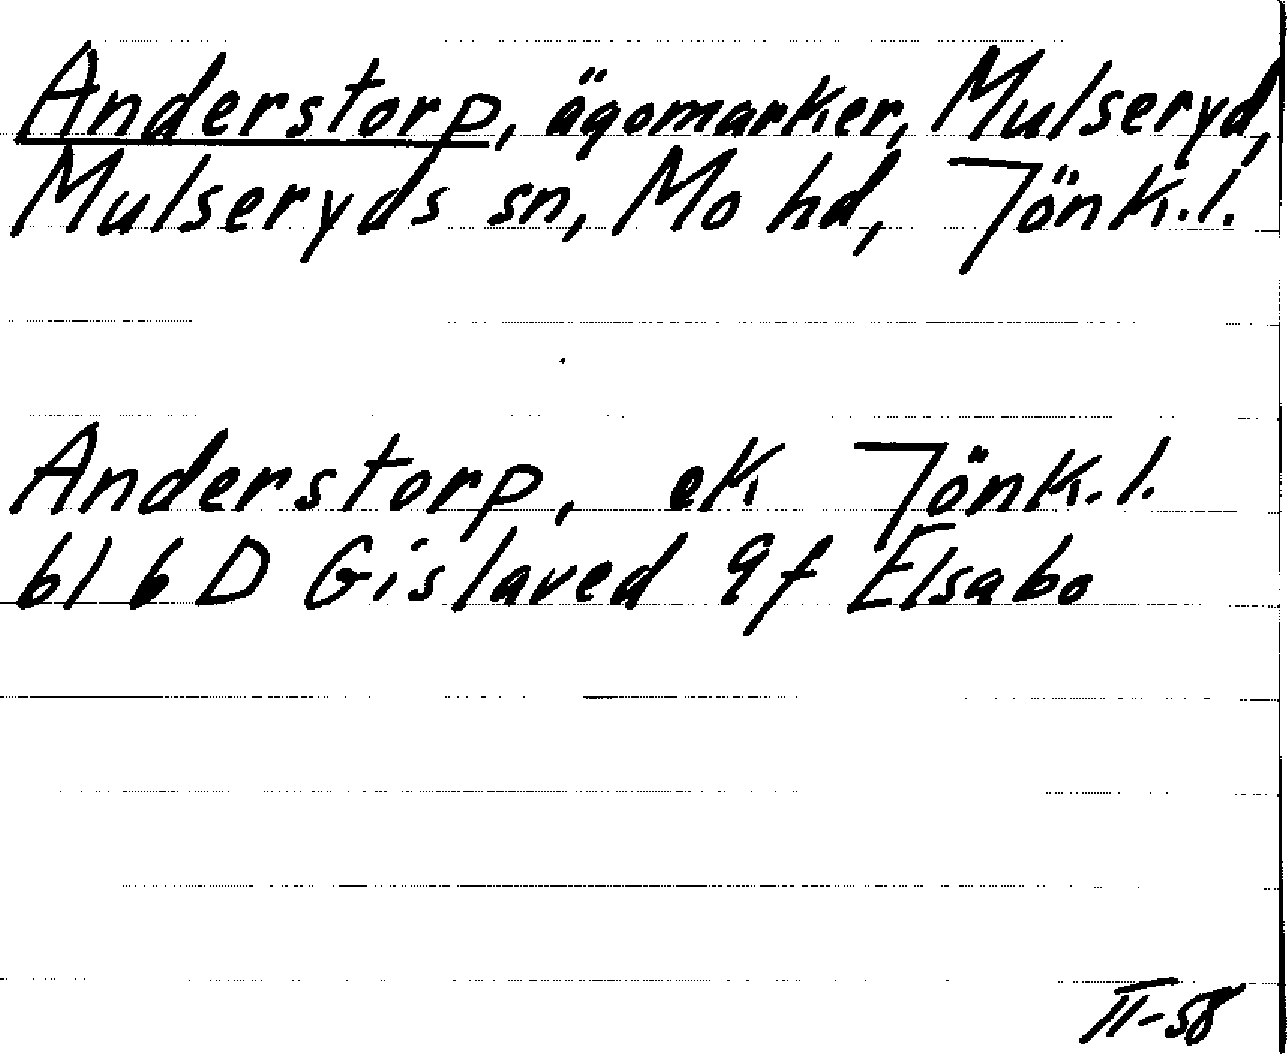 Anderstorp, ägomarker, Mulseryd,
Mulseryds sn, Mo hd, Jönk.l.
Anderstorp, ek Jönk.l.
bl 6 D Gislaved 9f Elsabo
II-58